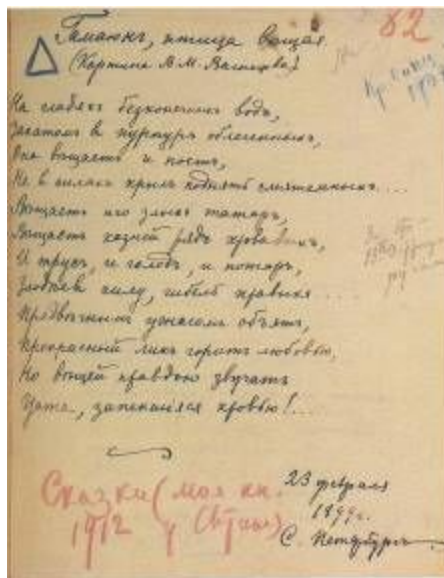 82
Гамаюнъ, птица вещая
(Картина В. М. Васнецова)
На гладяхъ безконечныхъ водъ,
Закатомъ в пурпуръ облеченныхъ,
Она вѣщаетъ и поетъ,
Не в силахъ крылъ поднять смятенныхъ....
Вѣщаетъ иго злыхъ татаръ,
Вѣщаетъ казней рядъ кровавыхъ,
И трусъ, и голодъ, и пожаръ,
Злодѣевъ силу, гибель правыхъ ...
Предвѣчнымъ ужасомъ объятъ,
Прекрасный ликъ горитъ любовью,
Но вѣщей правдою звучатъ
Уста, запекшіяся кровью!...
23 февраля
1899 г.
С. Петербургъ
Сказки (моя кн.
1912 у